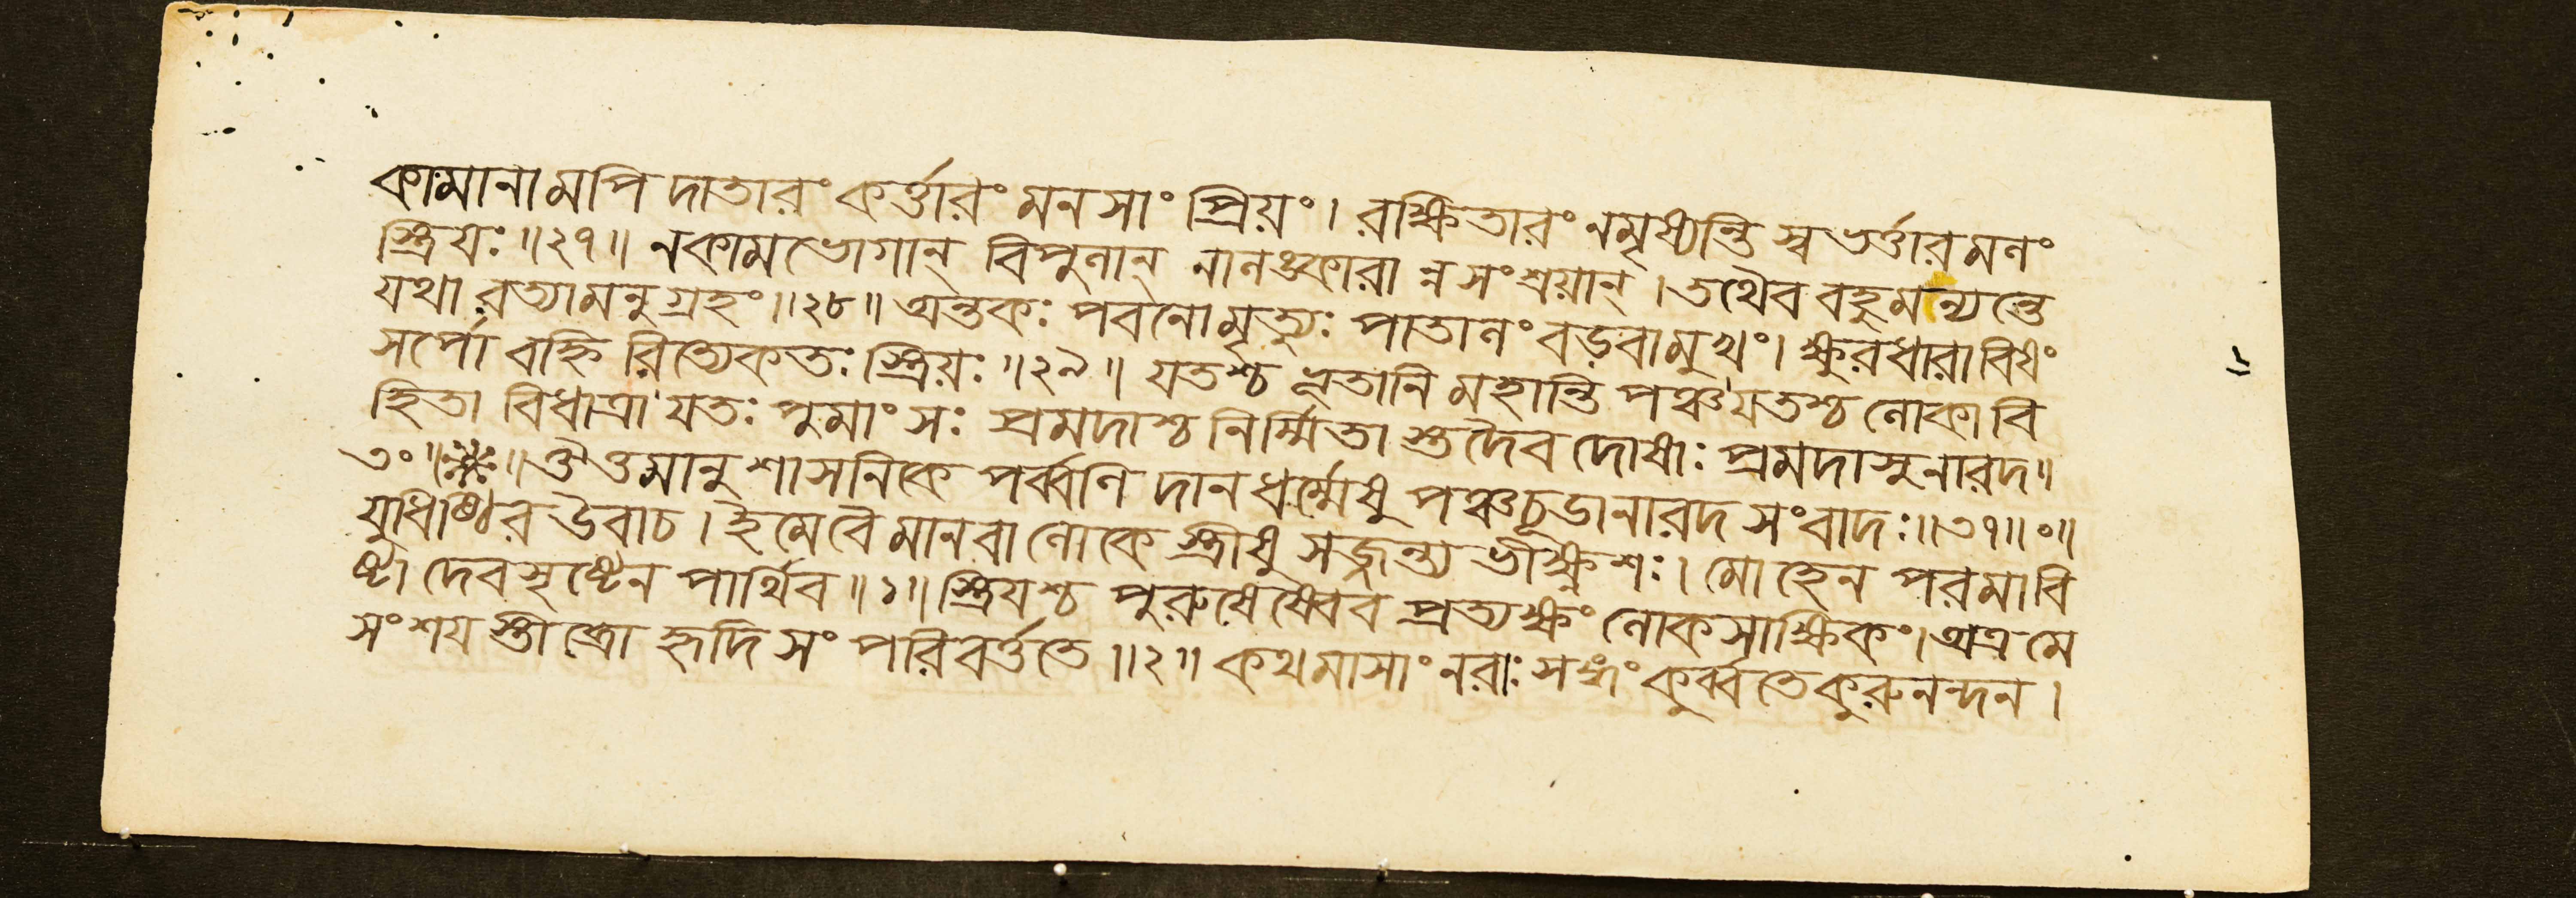 কামানামপি দাতারং কর্ত্তারং মনসাং প্রিয়ং। রক্ষিতারং নমৃষ্যন্তি স্বভর্ত্তারমলং
স্ত্রিয়ঃ॥২৭॥ নকামভোগান্ বিপুলান্ নালঙ্কারান্নসংশ্রয়ান্।তথৈব বহুমন্যন্তে
যথা রত্যামনুগ্রহং॥২৮॥ অন্তকঃ পবনোমৃত্যুঃ পাতালং বড়বামুখং। ক্ষুরধারাবিষং
সর্পো বহ্নিরিত্যেকতঃ স্ত্রিয়ঃ॥২৯॥ যতশ্চ ভূতানি মহান্তি পঞ্চ যতশ্চ লোকা বি
হিতা বিধাত্রা যতঃ পুমাংসঃ প্রমদাশ্চ নির্ম্মিতা স্তদৈব দোষাঃ প্রমদাসুনারদ॥
৩০॥ ॥ ঔওমানুশাসনিকে পর্ব্বণি দানধর্ম্মেষু পঞ্চচূডানারদসংবাদঃ॥৩৭॥০॥
যুধিষ্ঠির উবাচ। ইমেবৈ মানবা লোকে স্ত্রীষু সজ্জন্ত্যভীক্ষ্ণশঃ। মোহেন পরমাবি
ষ্টা দেবসৃষ্টেন পার্থিব॥১॥ স্ত্রিয়শ্চ পুরুষেষ্বেব প্রত্যক্ষং লোকসাক্ষিকং।অত্র মে
সংশয়স্তীব্রো হৃদি সংপরিবর্ত্ততে॥২॥ কথমাসাং নরাঃ সঙ্গং কুর্ব্বতে কুরুনন্দন।